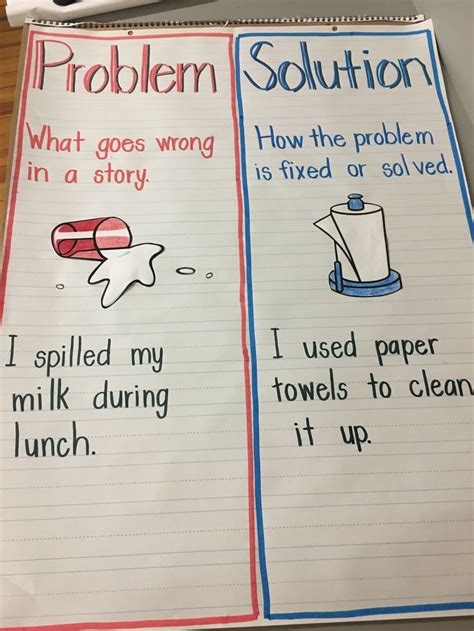 Problem
What goes wrong
in a story.
I spilled my
milk during
lunch.
Solution
How the problem
is fixed or solved.
I used paper
towels to clean
it up.